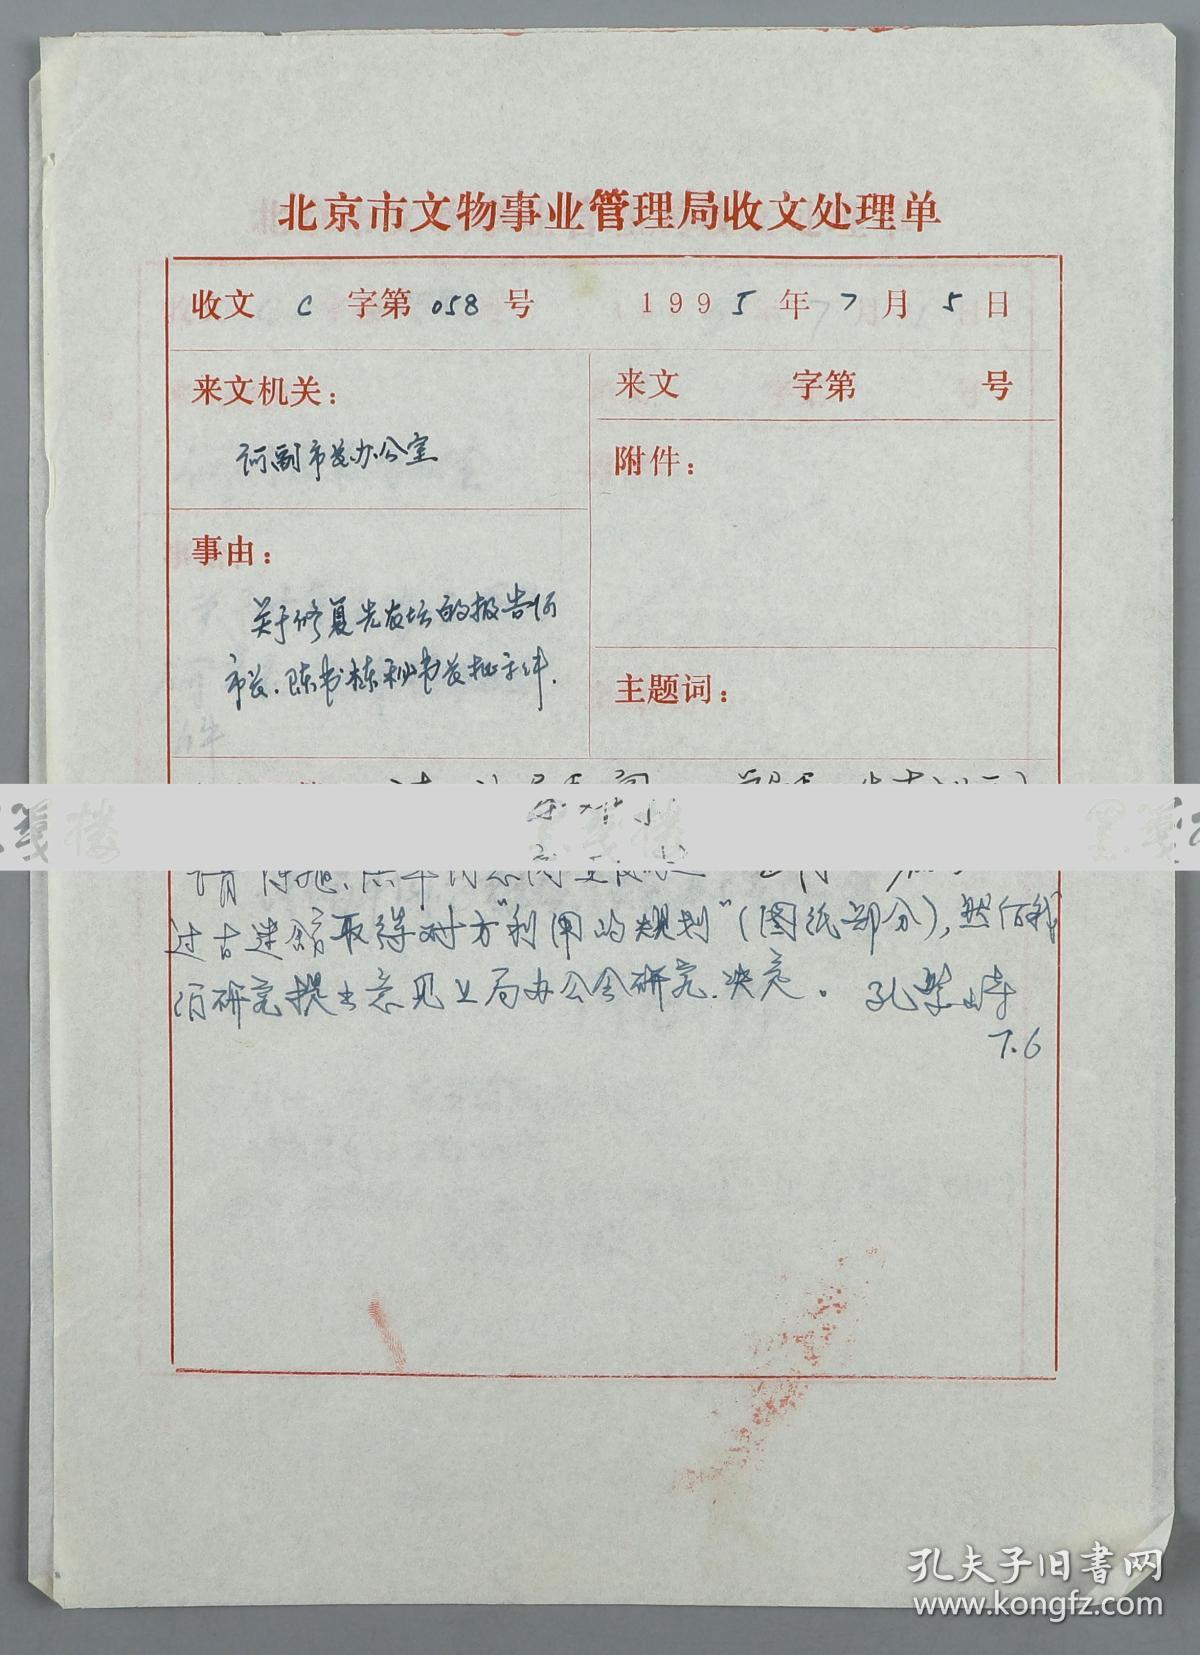 北京市文物事业管理局收文处理单
收文 C 字第 058 号 1995年7月5日
来文机关：
何副市长办公室
来文 字第 号
附件：
事由：
关于修复先农坛的报告何
市长、陈书栋秘书长批示件.
主题词：
过古建馆取得对方“利用的规划”（图纸部分），然后我
们研究提出意见上局办公会研究.决定。孔繁峙
7.6
孔夫子旧书网
www.kongfz.com